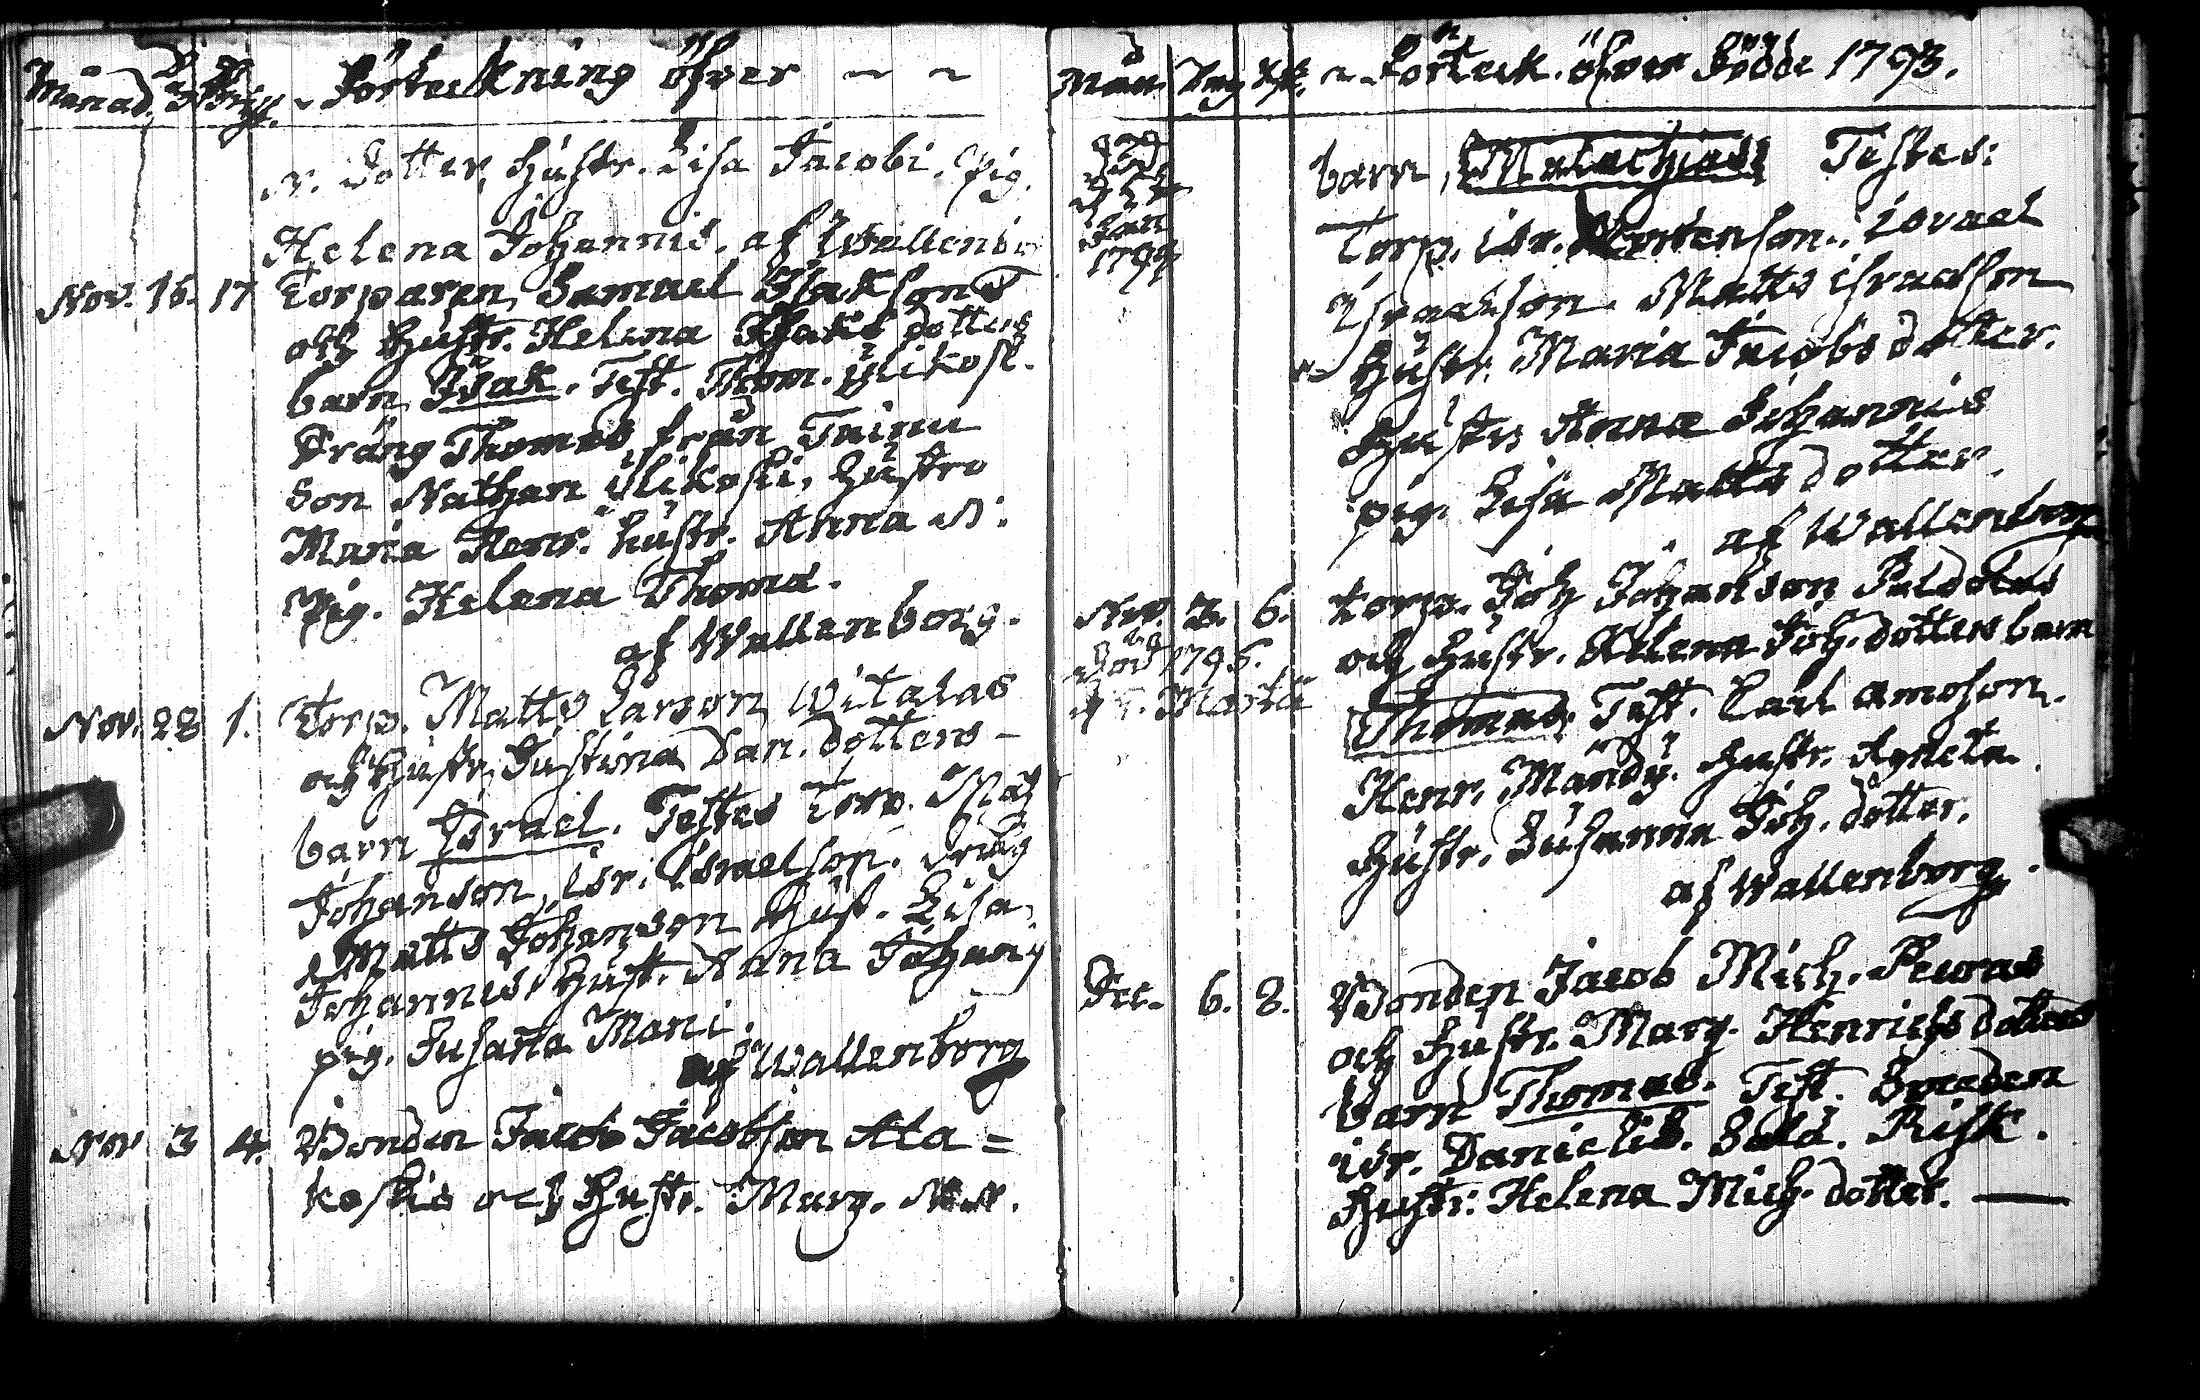 Månad. D. Chr. Förteckning öfver
N. Dotter, Hustr. Lisa Jacobi. Pig.
Helena Johannis. af Wallenbo
Nov. 16. 17 Torparen Samuel Isaksons
och Hustr. Helena Isaks dotters
barn Isak. Test. Thom. Ylikosk.
Dräng Thomas från Tainu
Son Nathan Ylikoski, Hustro
Maria Henr. hustr. Anna N.
Pig. Helena Thomæ.
af Wallenborg.
Nov. 28 1. Torp. Matts Larson Witalas
och Hustr. Justina Dan. dotters -
barn Israel. Testes Torp. Math
Johanson, Isr. Israelson. Dräng
Matts Johanson Hust. Lisa
Johannis, Hust. Anna Johanis
pig. Susana Mani.
af Wallenborg
Nov 3 4. Bonden Jacob Jacobson Ala=
koskis och Hustr. Marg.
Mån Dag Chr. Förteck. öfver Födde 1793.
barn, Malachias Testes:
Död
Jan
179
Torp. Isr. Mortenson. Isra el
Israelson. Matts Israelson
Hustr. Maria Jacobs dotter.
Hustr. Anna Johannis
pig. Lisa Matts dotter.
af Wallenborg
Nov. 3. 6. Torp. Joh Johanson Paldolas
och Hustr. Helena Joh. dotters barn
Död 1795.
d. Martii
Thomas. Test. Carl Amoson.
Henr. Mändy. Hustr. Agneta
Hustr. Susanna Joh. dotter.
af Wallenborg.
Dec. 6. 8. Bonden Jacob Mich. Peuras
och Hustr. Marg. Henrichs dotters
barn Thomas. Test. Smeden
Isr. Danielis. Sold. Risk.
Hustr. Helena Mich. dotter.